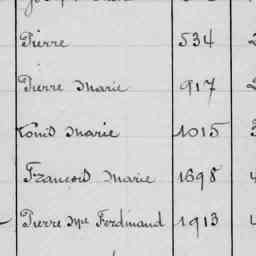 Pierre 534
Pierre Marie 917
Louis Marie 1015
François Marie 1698
Pierre Me Ferdinand 1913